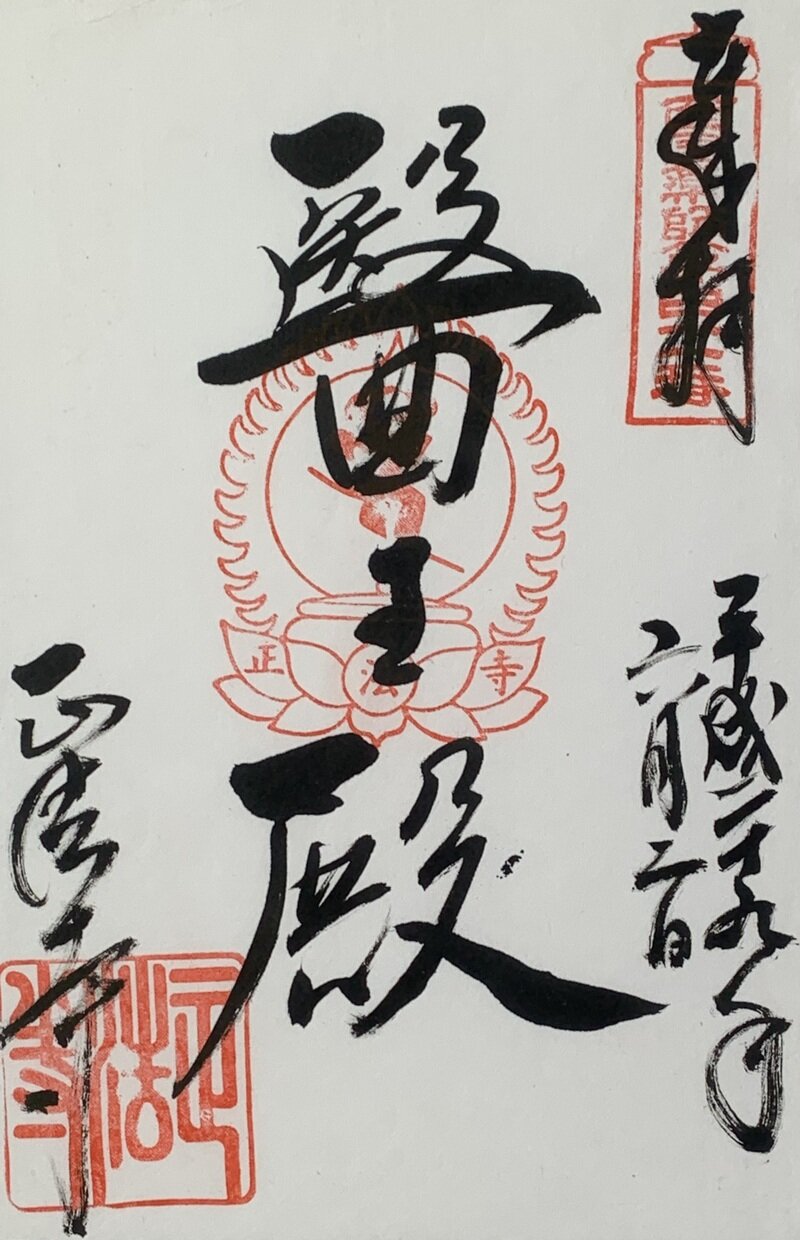 奉拝
平成二十九年
六月二日
醫王殿
正法寺
正法寺
正法寺